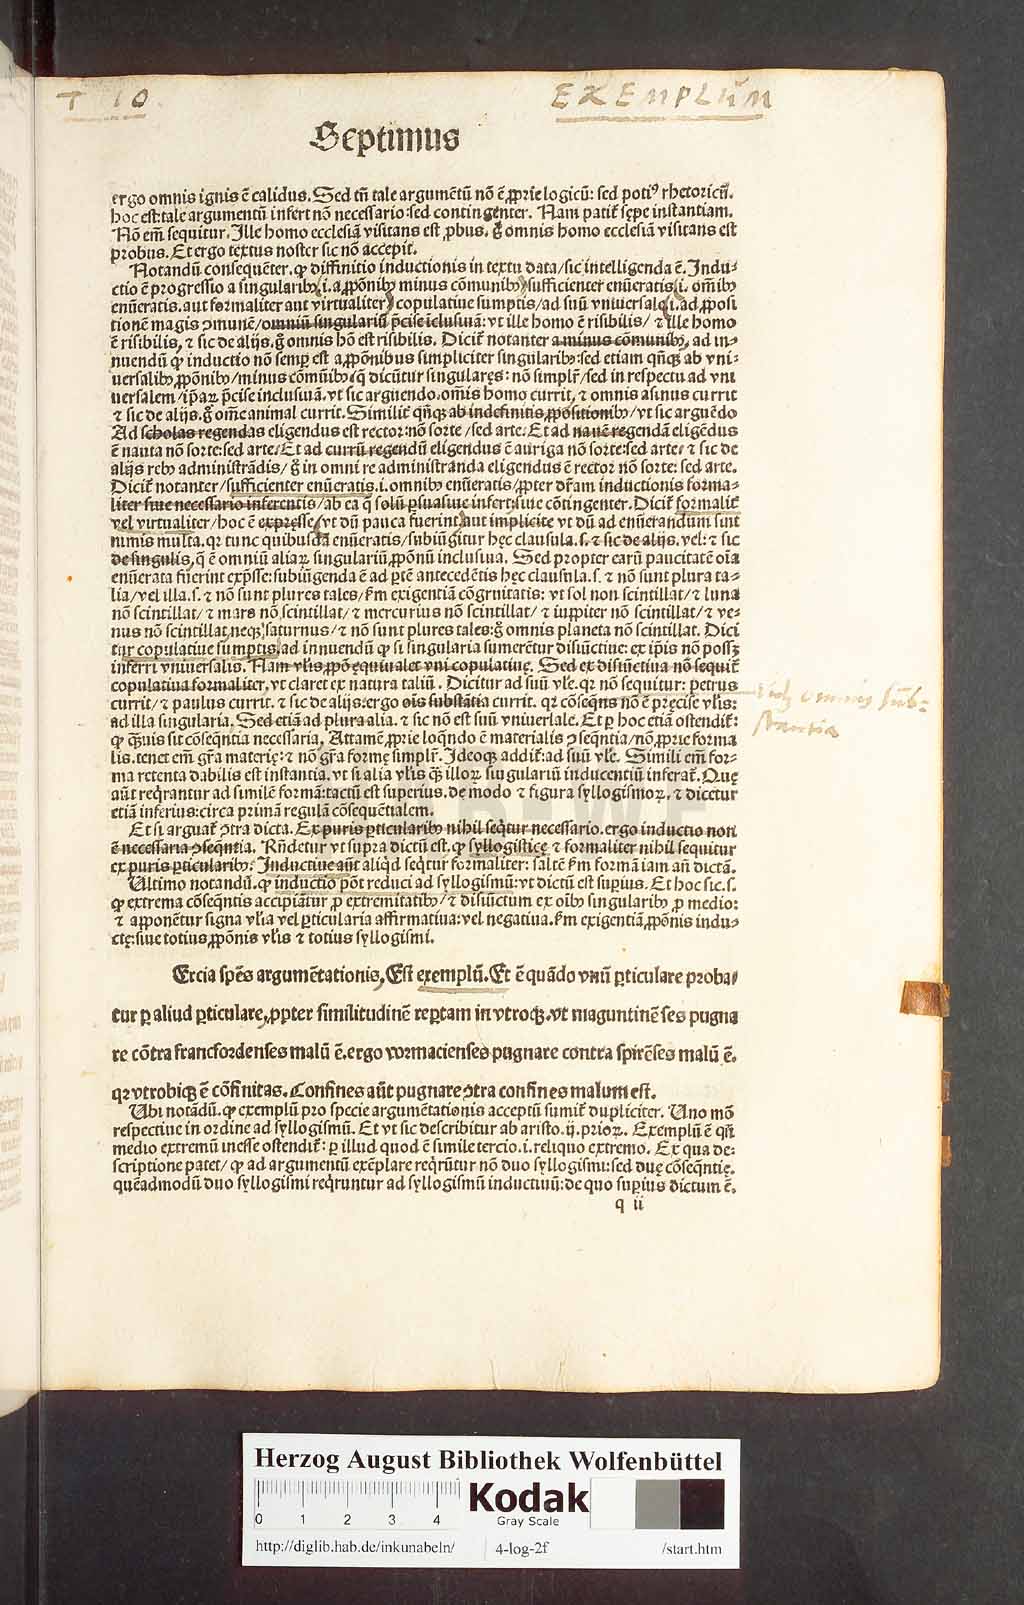 T 10
EXEMPLUM
Septimus
ergo omnis ignis ē calidus. Sed tñ tale argumētū nō ē ꝓprie logicū: sed potiꝰ rhetoricū.
hoc est: tale argumentū infert nō necessario: sed contingenter. Nam patit̄ sępe instantiam.
Nō em̄ sequitur. Ille homo ecclesiā visitans est ꝓbus. g̊ omnis homo ecclesiā visitans est
probus. Et ergo textus noster sic nō accepit.
Notandū consequēter. ꝙ diffinitio inductionis in textu data/ sic intelligenda ē. Indu⸗
ctio ē progressio a singularibꝫ/ .i. a ꝓpōnibꝫ minus cōmunibꝫ/ sufficienter enūeratis/ .i. om̄ibꝫ
enūeratis. aut formaliter aut virtualiter/ copulatiue sumptis/ ad suū vniuersale/ .i. ad ꝓposi
tionē magis ↄmunē/ omniū singulariū p̄cise iclusiuā: vt ille homo ē risibilis/ ⁊ ille homo
ē risibilis, ⁊ sic de alijs. g̊ omnis hō est risibilis. Dicit̄ notanter a minus cōmunibꝫ, ad in⸗
nuendū ꝙ inductio nō semꝑ est a ꝓpōnibus simpliciter singularibꝫ: sed etiam qn̄qꝫ ab vni⸗
uersalibꝫ ꝓpōnibꝫ/ minus cōmūibꝫ/ q̄ dicūtur singularęs: nō simplr̄/ sed in respectu ad vni
uersalem/ ip̄aꝝ p̄cise inclusiuā. vt sic arguendo. om̄is homo currit, ⁊ omnis asinus currit
⁊ sic de alijs. g̊ om̄e animal currit. Similit̄ qn̄qꝫ ab indefinitis ꝓpositionibꝫ/ vt sic arguēdo
Ad scholas regendas eligendus est rector: nō sorte/ sed arte. Et ad nauē regendā eligēdus
ē nauta nō sorte: sed arte/ Et ad currū regendū eligendus ē auriga nō sorte: sed arte/ ⁊ sic de
alijs rebꝫ administrādis/ g̊ in omni re administranda eligendus ē rector nō sorte: sed arte.
Dicit̄ notanter/ sufficienter enūeratis .i. omnibꝫ enūeratis/ ꝓpter dr̄am inductionis forma⸗
liter siue necessario inferentis/ ab ea q̄ solū ꝑsuasiue infert: siue cōtingenter. Dicit̄ formalit̄
vel virtualiter/ hoc ē expręsse/ vt dū pauca fuerint/ aut implicite vt dū ad enūerandum sunt
nimis multa. qꝛ tunc quibusdā enūeratis/ subiūgitur hęc clausula .s. ⁊ sic de alijs. vel: ⁊ sic
de singulis, q̄ ē omniū aliaꝝ singulariū ꝓpōnū inclusiua. Sed propter earū paucitatē oīa
enūerata fuerint exp̄sse: subiūgenda ē ad ꝑtē antecedētis hęc clausula .s. ⁊ nō sunt plura ta⸗
lia/ vel illa .s. ⁊ nō sunt plures tales/ ẜm exigentiā cōgruitatis: vt sol non scintillat/ ⁊ luna
nō scintillat/ ⁊ mars nō scintillat/ ⁊ mercurius nō scintillat/ ⁊ iuppiter nō scintillat/ ⁊ ve⸗
nus nō scintillat, neqꝫ saturnus/ ⁊ nō sunt plures tales: g̊ omnis planeta nō scintillat. Dici
tur copulatiue sumptis/ ad innuendū ꝙ si singularia sumerētur disiunctiue: ex ip̄is nō possꝫ
inferri vniuersalis. Nam vl̄is ꝓpō ęquiualet vni copulatiuę. Sed ex disiunctiua nō sequit̄
copulatiua formaliter, vt claret ex natura taliū. Dicitur ad suū vl̄e. qꝛ nō sequitur: petrus
currit/ ⁊ paulus currit. ⁊ sic de alijs: ergo oīs substātia currit. qꝛ cōseqn̄s nō ē p̄cise vl̄is:
ad illa singularia. Sed etiā ad plura alia. ⁊ sic nō est suū vniuersale. Et ꝑ hoc etiā ostendit̄:
ꝙ q̄uis sit cōseqn̄tia necessaria. Attamē ꝓprie loqn̄do ē materialis ↄseqn̄tia/ nō ꝓprie forma
lis. tenet em̄ gr̄a materię: ⁊ nō gr̄a formę simplr̄. Ideoqꝫ addit̄: ad suū vl̄e. Simili em̄ for⸗
ma retenta dabilis est instantia. vt si alia vl̄is q̄ꝫ illoꝝ singulariū inducentiū inferat̄. Quę
aūt reqrantur ad similē formā: tactū est superius. de modo ⁊ figura syllogismoꝝ. ⁊ dicetur
etiā inferius: circa primā regulā cōsequētialem.
Et si arguat̄ ↄtra dicta. Ex puris ꝑticularibꝫ nihil seqtur necessario. ergo inductio non
ē necessaria ↄseqn̄tia. Rn̄detur vt supra dictū est. ꝙ syllogisticę ⁊ formaliter nihil sequitur
ex puris ꝑticularibꝫ. Inductiue aūt aliqd seqtur formaliter: saltē ẜm formā iam añ dictā.
Ultimo notandū. ꝙ inductio pōt reduci ad syllogismū: vt dictū est suꝑius. Et hoc sic .s.
ꝙ extrema cōseqn̄tis accipiātur ꝓ extremitatibꝫ/ ⁊ disiūctum ex oībꝫ singularibꝫ ꝓ medio:
⁊ apponētur signa vl̄ia vel ꝑticularia affirmatiua: vel negatiua. ẜm exigentiā ꝓpōnis indu⸗
ctę: siue totius ꝓpōnis vl̄is ⁊ totius syllogismi.
Ercia spēs argumētationis, Est exemplū. Et ē quādo vnū ꝑticulare proba/
tur ꝑ aliud ꝑticulare, ꝓpter similitudinē reꝑtam in vtroqꝫ. vt maguntinēses pugna
re cōtra francfordenses malū ē. ergo vormacienses pugnare contra spirēses malū ē.
qꝛ vtrobiqꝫ ē cōfinitas. Confines aūt pugnare ↄtra confines malum est.
Ubi notādū. ꝙ exemplū pro specie argumētationis acceptū sumit̄ dupliciter. Uno mō
respectiue in ordine ad syllogismū. Et vt sic describitur ab aristo. ij. prioꝝ. Exemplū ē qn̄
medio extremū inesse ostendit̄: ꝑ illud quod ē simile tercio .i. reliquo extremo. Ex qua de⸗
scriptione patet/ ꝙ ad argumentū exēplare reqrūtur nō duo syllogismi: sed duę cōseqn̄tię.
quēadmodū duo syllogismi reqruntur ad syllogismū inductiuū: de quo suꝑius dictum ē.
q ii
vidꝫ omnis sub⸗
stantia
Herzog August Bibliothek Wolfenbüttel
0 1 2 3 4
Kodak
Gray Scale
http://diglib.hab.de/inkunabeln/ 4-log-2f /start.htm